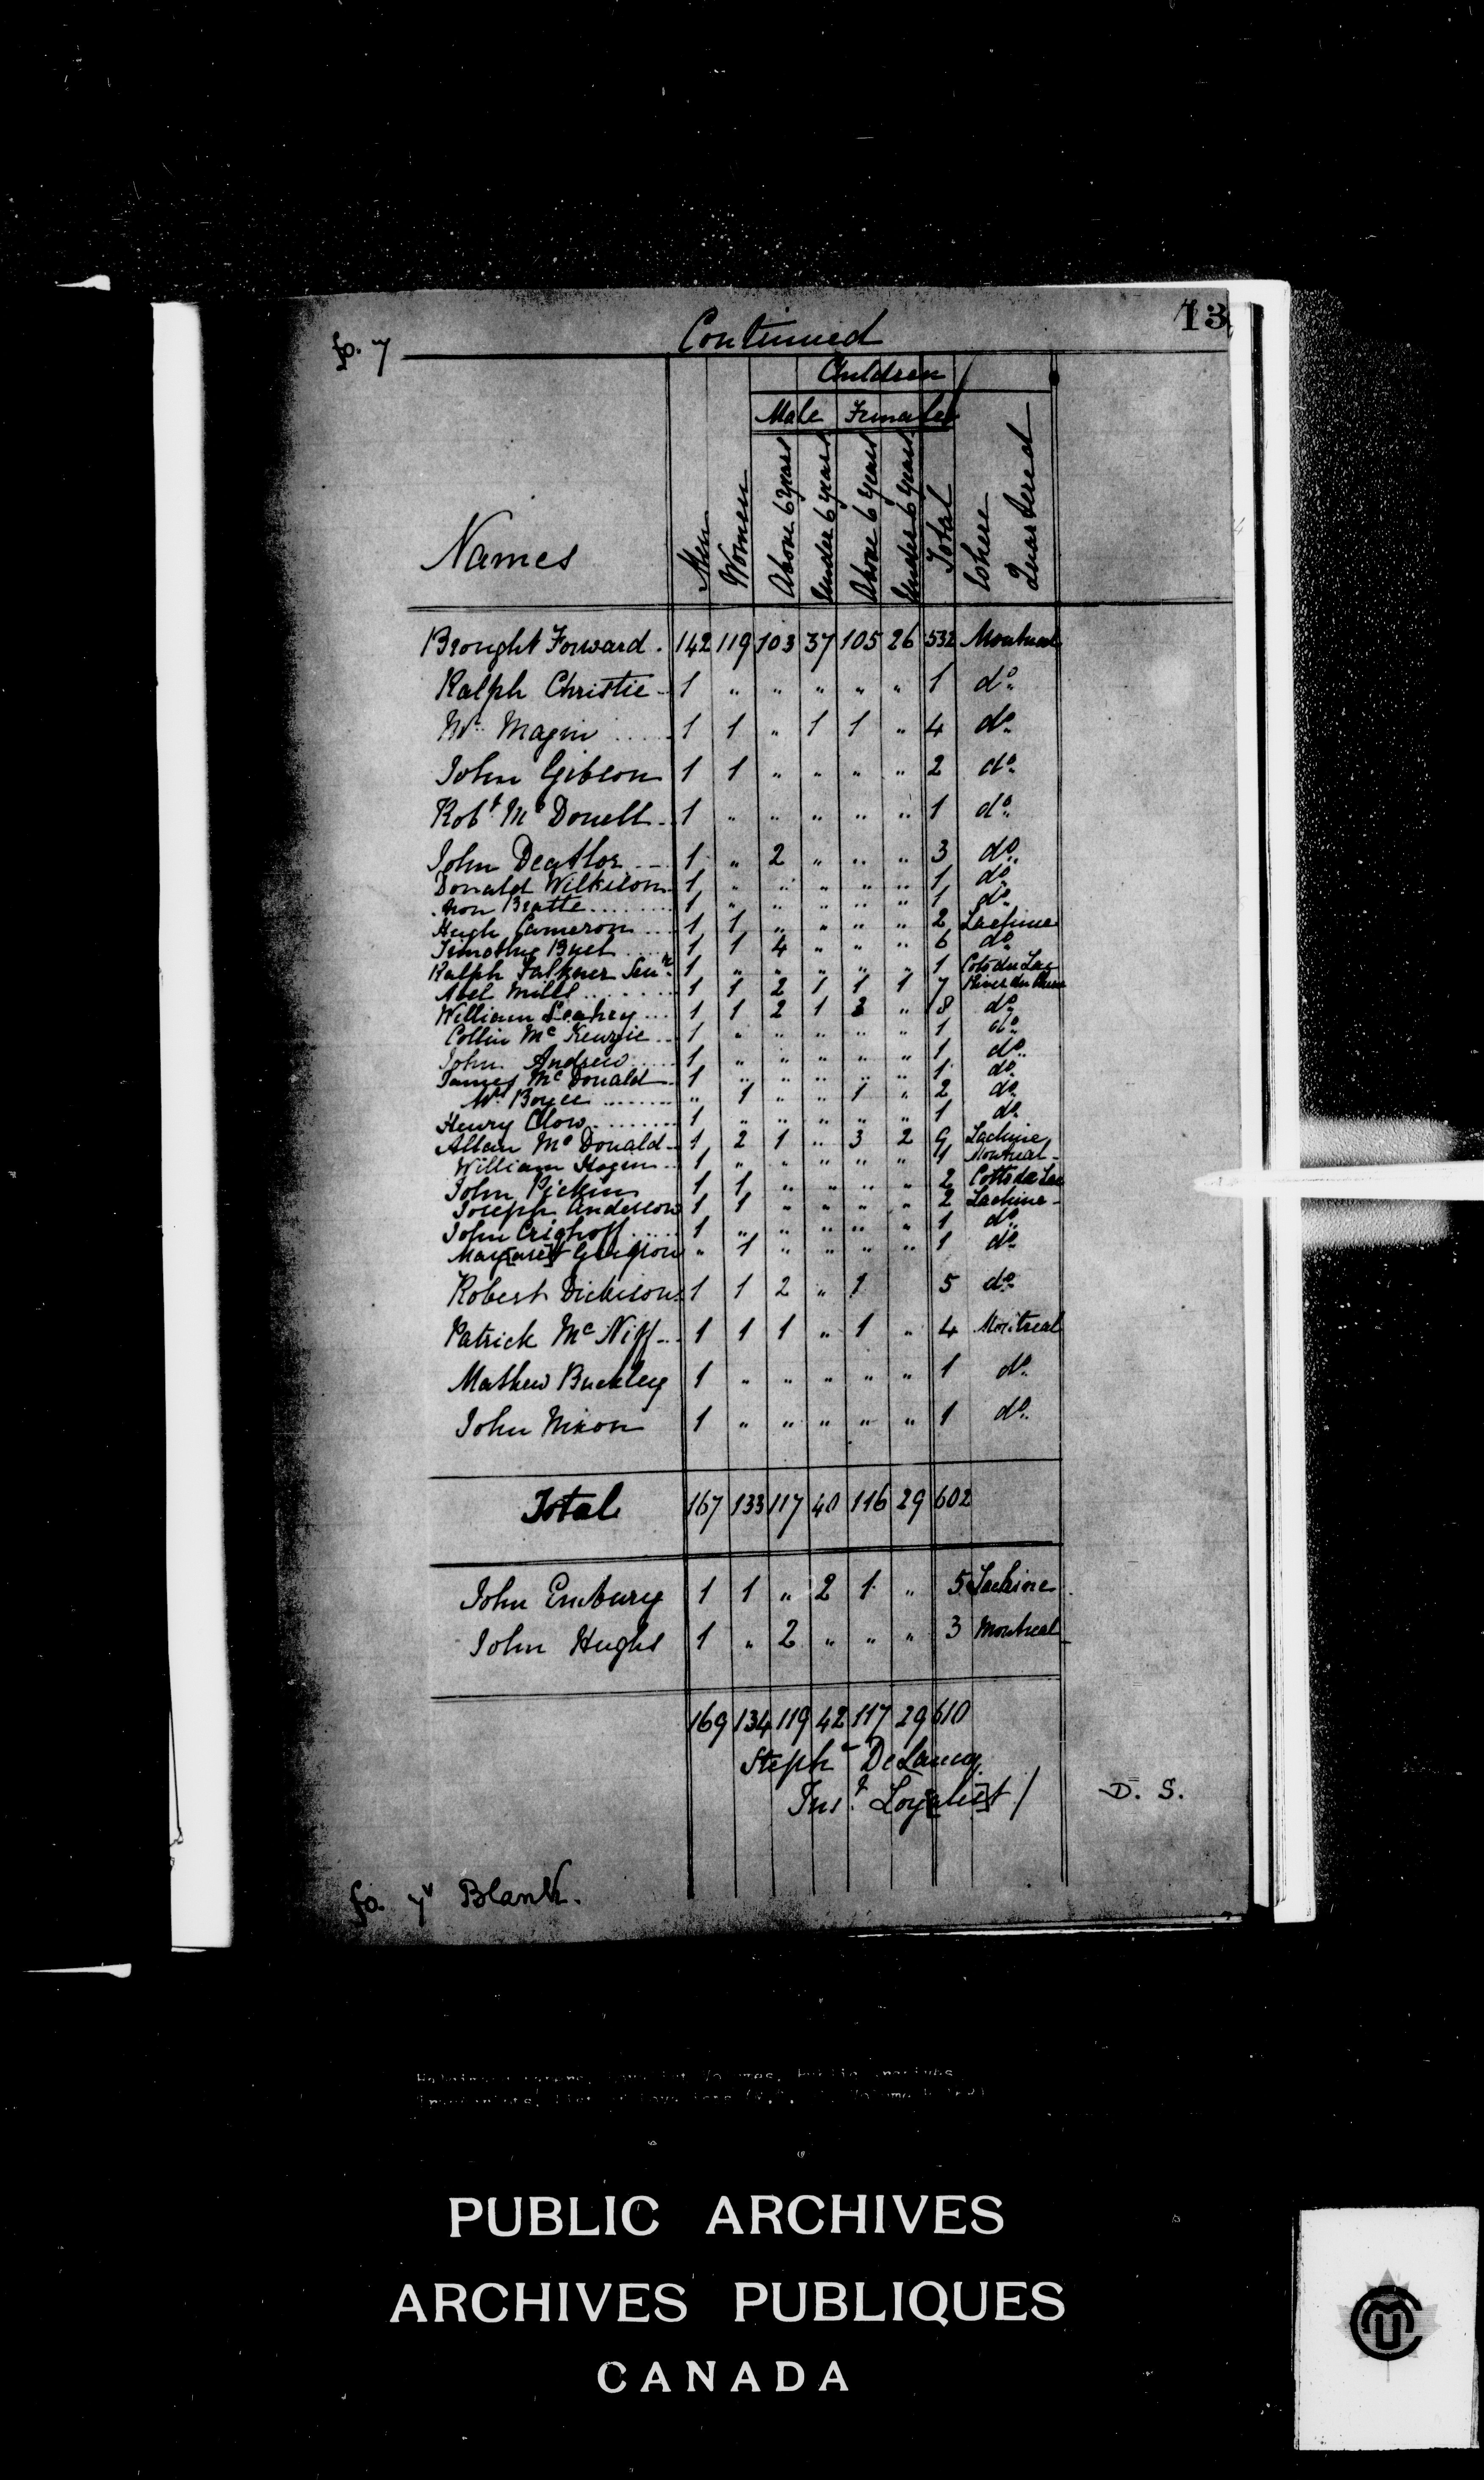 13
fo. 7 Continued
Children
Male Females
Names Men Women Above 6 years Under 6 years Above 6 years Under 6 years Total Where Quartered
Brought Forward . 142 119 103 37 105 26 532 Montreal
Ralph Christie 1 " " " " " 1 do
Mr Magin 1 1 " 1 1 " 4 do
John Gibson 1 1 " " " " 2 do
Robt Mc Donell 1 " " " " " 1 do
John Deathor 1 " 2 " " " 3 do
Donald Wilkison 1 " " " " " 1 do
Beatte 1 " " " " " 1 do
Hugh Cameron 1 1 " " " " 2 Lachine
Timothy Buel 1 1 4 " " " 6 do
Ralph Falkner Senr 1 " " " " " 1 Coto du Lac
Abel Mills 1 1 2 1 1 1 7 River du
William Leahey 1 1 2 1 3 " 8 do
Collin Mc Kenzie 1 " " " " " 1 do
John Andrew 1 " " " " " 1 do
James Mc Donald 1 " " " " " 1 do
Boyce " 1 " " 1 " 2 do
Henry Clow 1 " " " " " 1 do
Allan Mc Donald 1 2 1 " 3 2 9 Lachine
William Hagen 1 " " " " " 1 Montreal
John Pickin 1 1 " " " " 2 Cotto du Lac
Joseph Anderson 1 1 " " " " 2 Lachine
John Crighoff 1 " " " " " 1 do
Mar[gare]t " 1 " " " " 1 do
Robert Dickison 1 1 2 " 1 5 do
Patrick Mc Niff 1 1 1 " 1 " 4 Montreal
Mathew Buckley 1 " " " " " 1 do
John Nixon 1 " " " " " 1 do
Total 167 133 117 40 116 29 602
John Embury 1 1 " 2 1 " 5 Lachine
John Hughs 1 " 2 " " " 3 Montreal
169 134 119 42 117 29 610
Steph DeLancy
Inst Loy[alis]t / D. S.
fo. 7v Blank.
PUBLIC ARCHIVES
ARCHIVES PUBLIQUES
CANADA